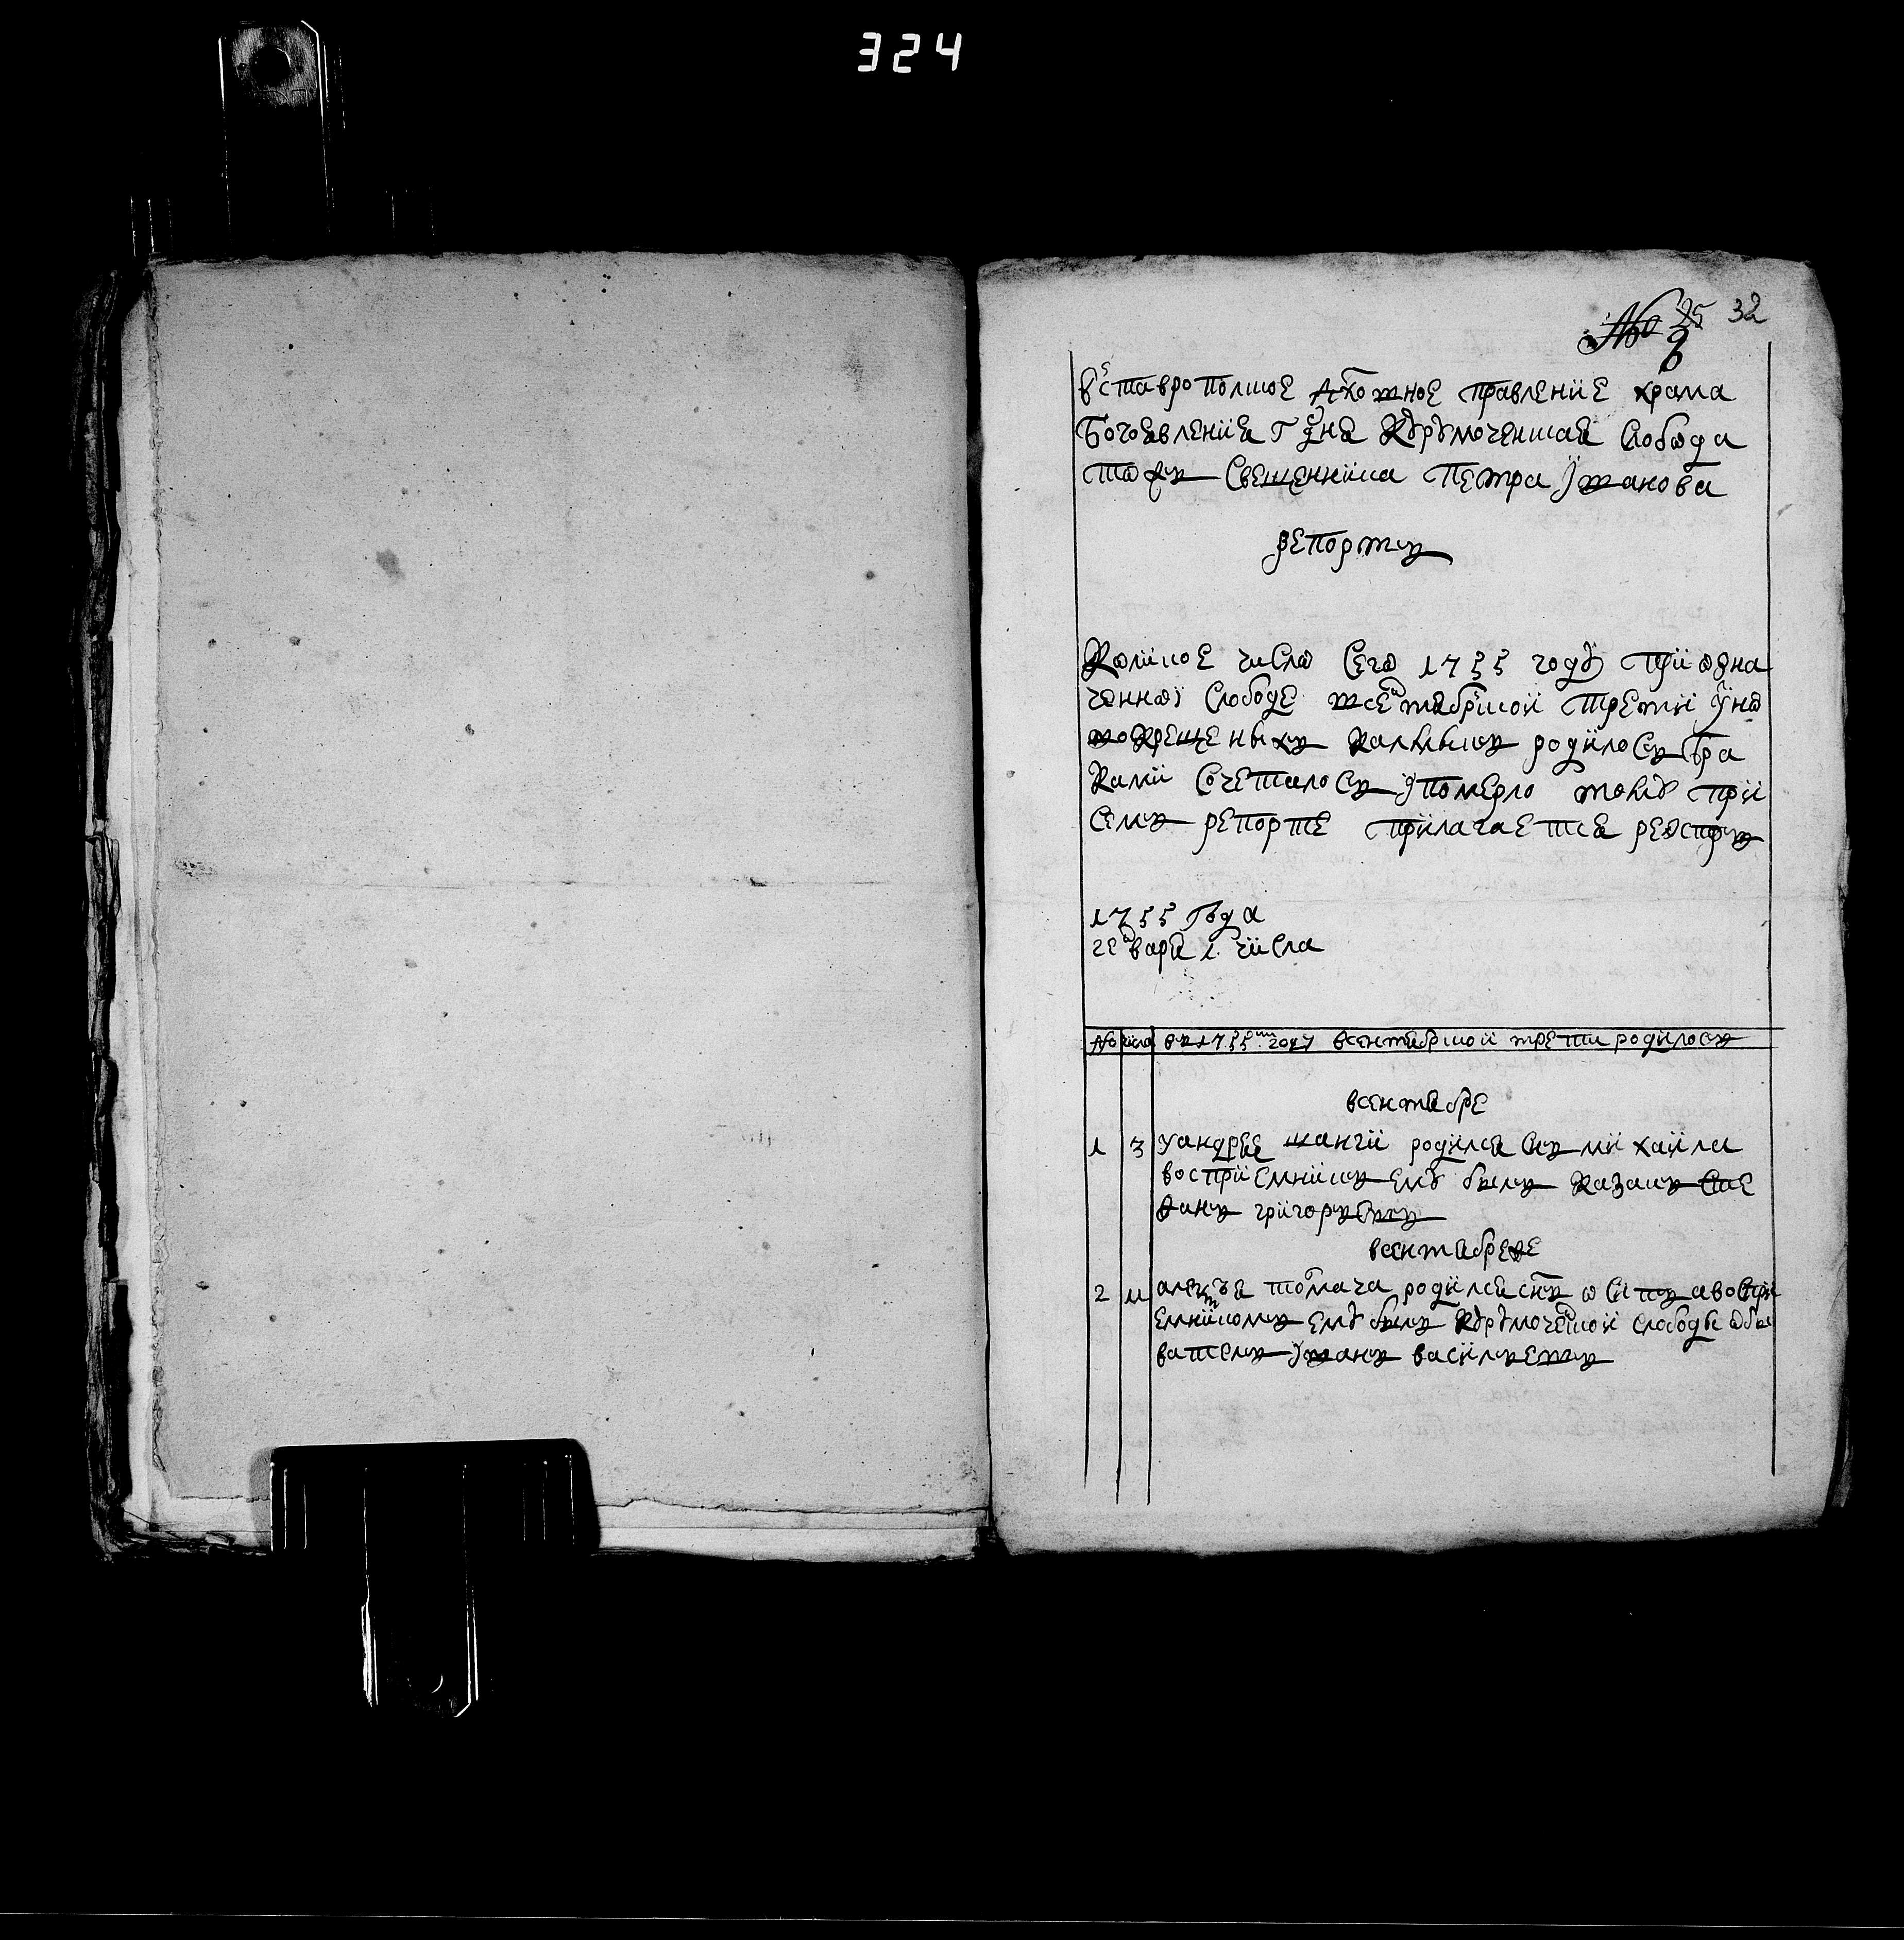 324
№ 25 32
вставрополское духовное правление храма
Богоявления Гдня Курумоченская слобода
того свещенника петра Иванова
репортъ
Коликое число сего 1755 году при означа
ченной слободе всентябрской трети уно
вокрещеныхъ калмыкъ родилось бра
ками сочеталось и померло тому при
семъ репорте прилагается реэстръ
1755 года
генваря 1 числа
№ числа въ 1755м году всентябрской трети родилось
всентябре
1 3 уандрея манги родился снъ михаила
восприемникъ ему былъ казакъ
григорьевъ
2 11 родился снъ осипъ а воспри
емникомъ ему былъ курумоченской слободы обы
ватель Иванъ васильевъ